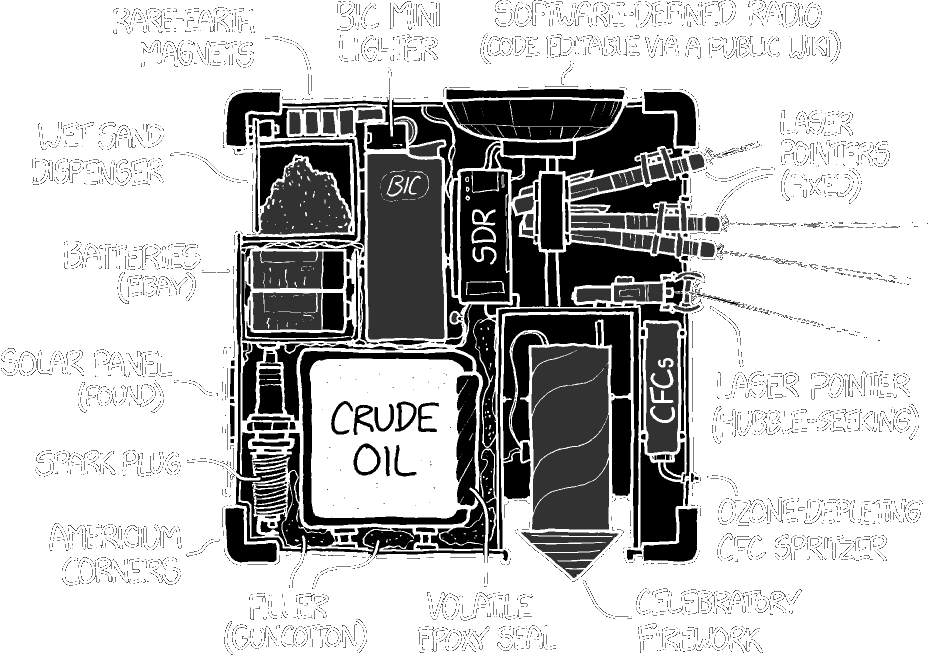 RARE-EARTH
MAGNETS
BIC MINI
LIGHTER
SOFTWARE-DEFINED RADIO
(CODE EDITABLE VIA A PUBLIC WIKI)
WET SAND
DISPENSER
LASER
POINTERS
(FIXED)
BIC
SDR
BATTERIES
(EBAY)
SOLAR PANEL
(FOUND)
CRUDE
OIL
CFCs
LASER POINTER
(HUBBLE-SEEKING)
SPARK PLUG
OZONE-DEPLETING
CFC SPRITZER
AMERICIUM
CORNERS
FILLER
(GUNCOTTON)
VOLATILE
EPOXY SEAL
CELEBRATORY
FIREWORK